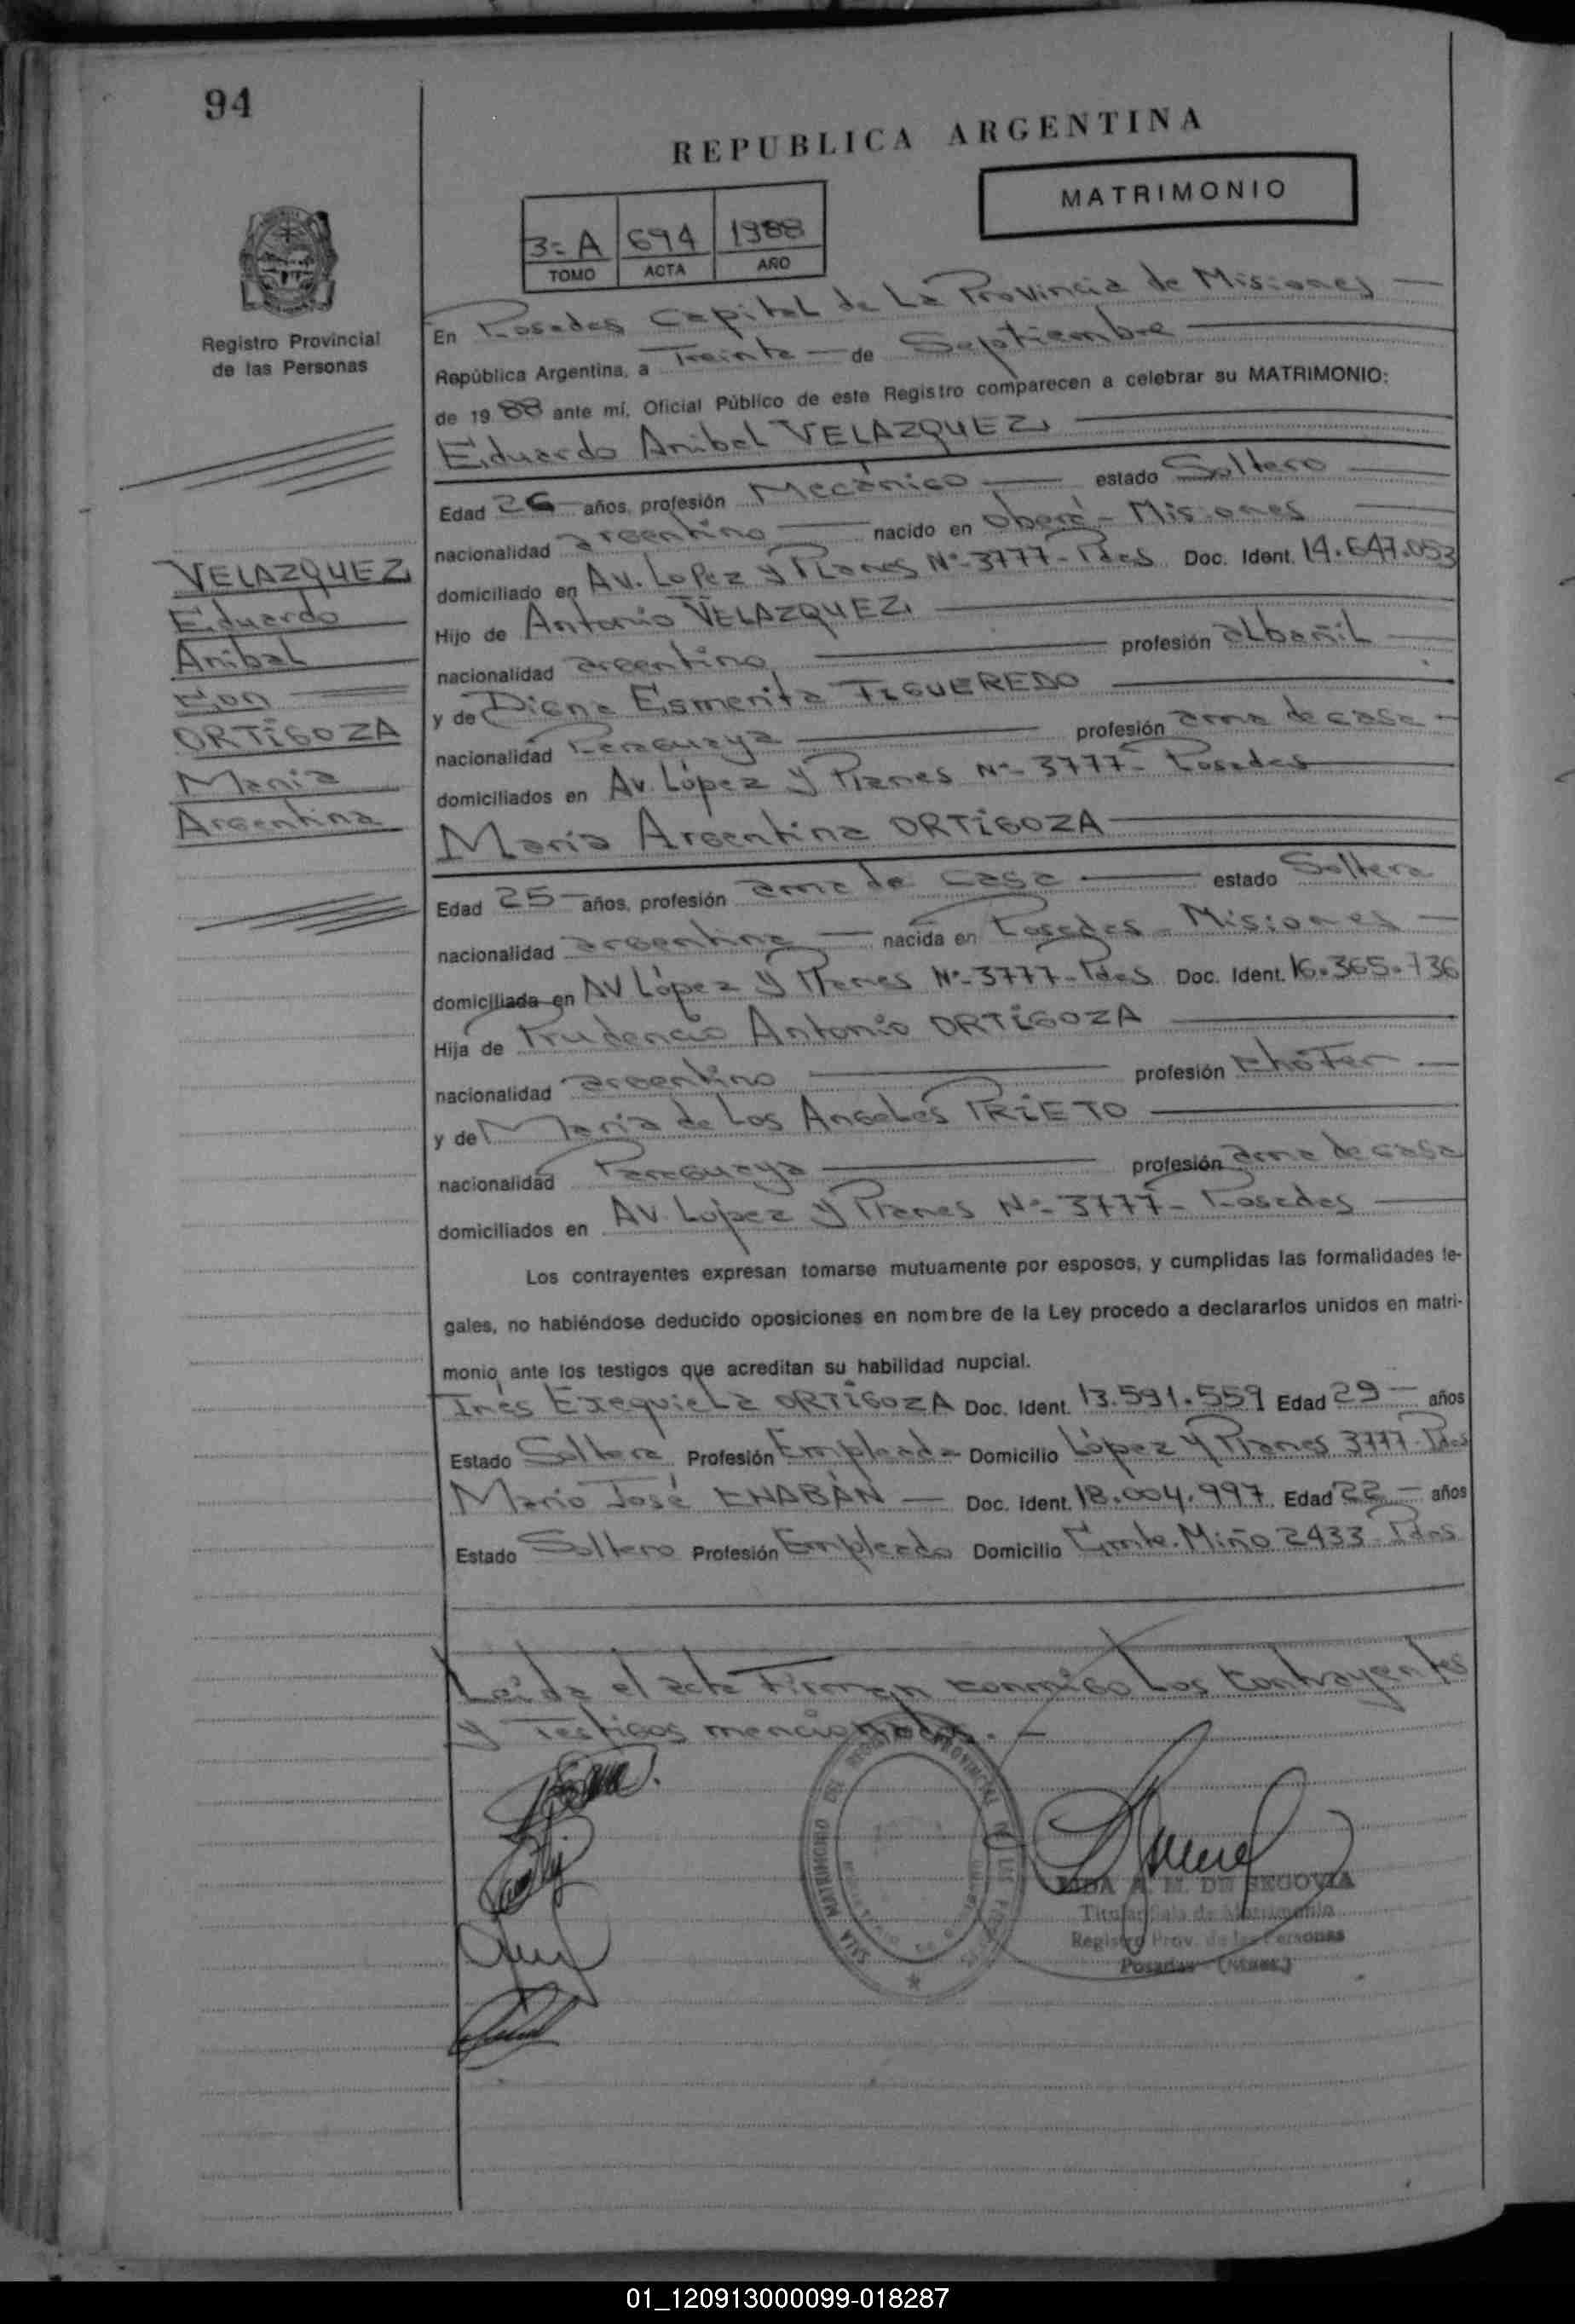 94
REPUBLICA ARGENTINA
MATRIMONIO
3=A 694 1988
TOMO ACTA AÑO
Registro Provincial
de las Personas
En Posadas Capital de La Provincia de Misiones
República Argentina, a Treinta de Septiembre
de 1988 ante mí, Oficial Público de este Registro comparecen a celebrar su MATRIMONIO:
Eduardo Anibal VELAZQUEZ
Edad 26 años, profesión Mecánico estado Soltero
nacionalidad argentino nacido en Oberá - Misiones
domiciliado en Av. Lopez y Planes Nº 3777 - Pdas Doc. Ident. 14.647.053
Hijo de Antonio VELAZQUEZ
nacionalidad argentino profesión albañil
y de Diana Esmerita FIGUEREDO
nacionalidad Paraguaya profesión ama de casa
domiciliados en Av. López y Planes Nº 3777 - Posadas
María Argentina ORTIGOZA
Edad 25 años, profesión ama de casa estado Soltera
nacionalidad argentina nacida en Posadas - Misiones
domiciliada en Av López y Planes Nº 3777 - Pdas Doc. Ident. 16.365.736
Hija de Prudencio Antonio ORTIGOZA
nacionalidad argentino profesión chófer
y de María de Los Angeles PRIETO
nacionalidad Paraguaya profesión ama de casa
domiciliados en AV. López y Planes Nº 3777 - Posadas
Los contrayentes expresan tomarse mutuamente por esposos, y cumplidas las formalidades le-
gales, no habiéndose deducido oposiciones en nombre de la Ley procedo a declararlos unidos en matri-
monio ante los testigos que acreditan su habilidad nupcial.
Inés Exequiela ORTIGOZA Doc. Ident. 13.591.559 Edad 29 años
Estado Soltera Profesión Empleada Domicilio López y Planes 3777 - Pdas
Mario José CHABÁN Doc. Ident. 18.004.997 Edad 22 años
Estado Soltero Profesión Empleado Domicilio Cmte. Miño 2433 - Pdas
Leida el acta Firman conmigo Los contrayentes
y Testigos mencionados.
VELAZQUEZ
Eduardo
Anibal
con
ORTIGOZA
María
Argentina
SALA MATRIMONIO DEL REGISTRO PROVINCIAL DE LAS PERSONAS
DE SEGOVIA
Titular Sala de Matrimonio
Registro Prov. de las Personas
Posadas
01_120913000099-018287